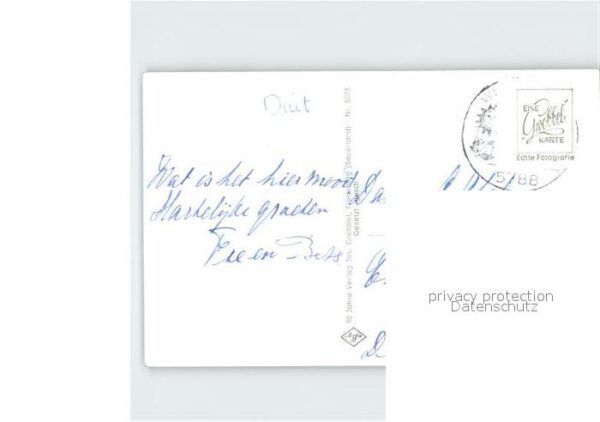 Duit
Wat is het hier mooi
Hartelijke groeten
en Bets
Da
D
90 Jahre Verlag Jos. Grobbel, Fredeburg (Sauerland) - Nr. 
Gesetzl.
Agfa
EINE
Grobbel
KARTE
Echte Fotografie
5788
privacy protection
Datenschutz